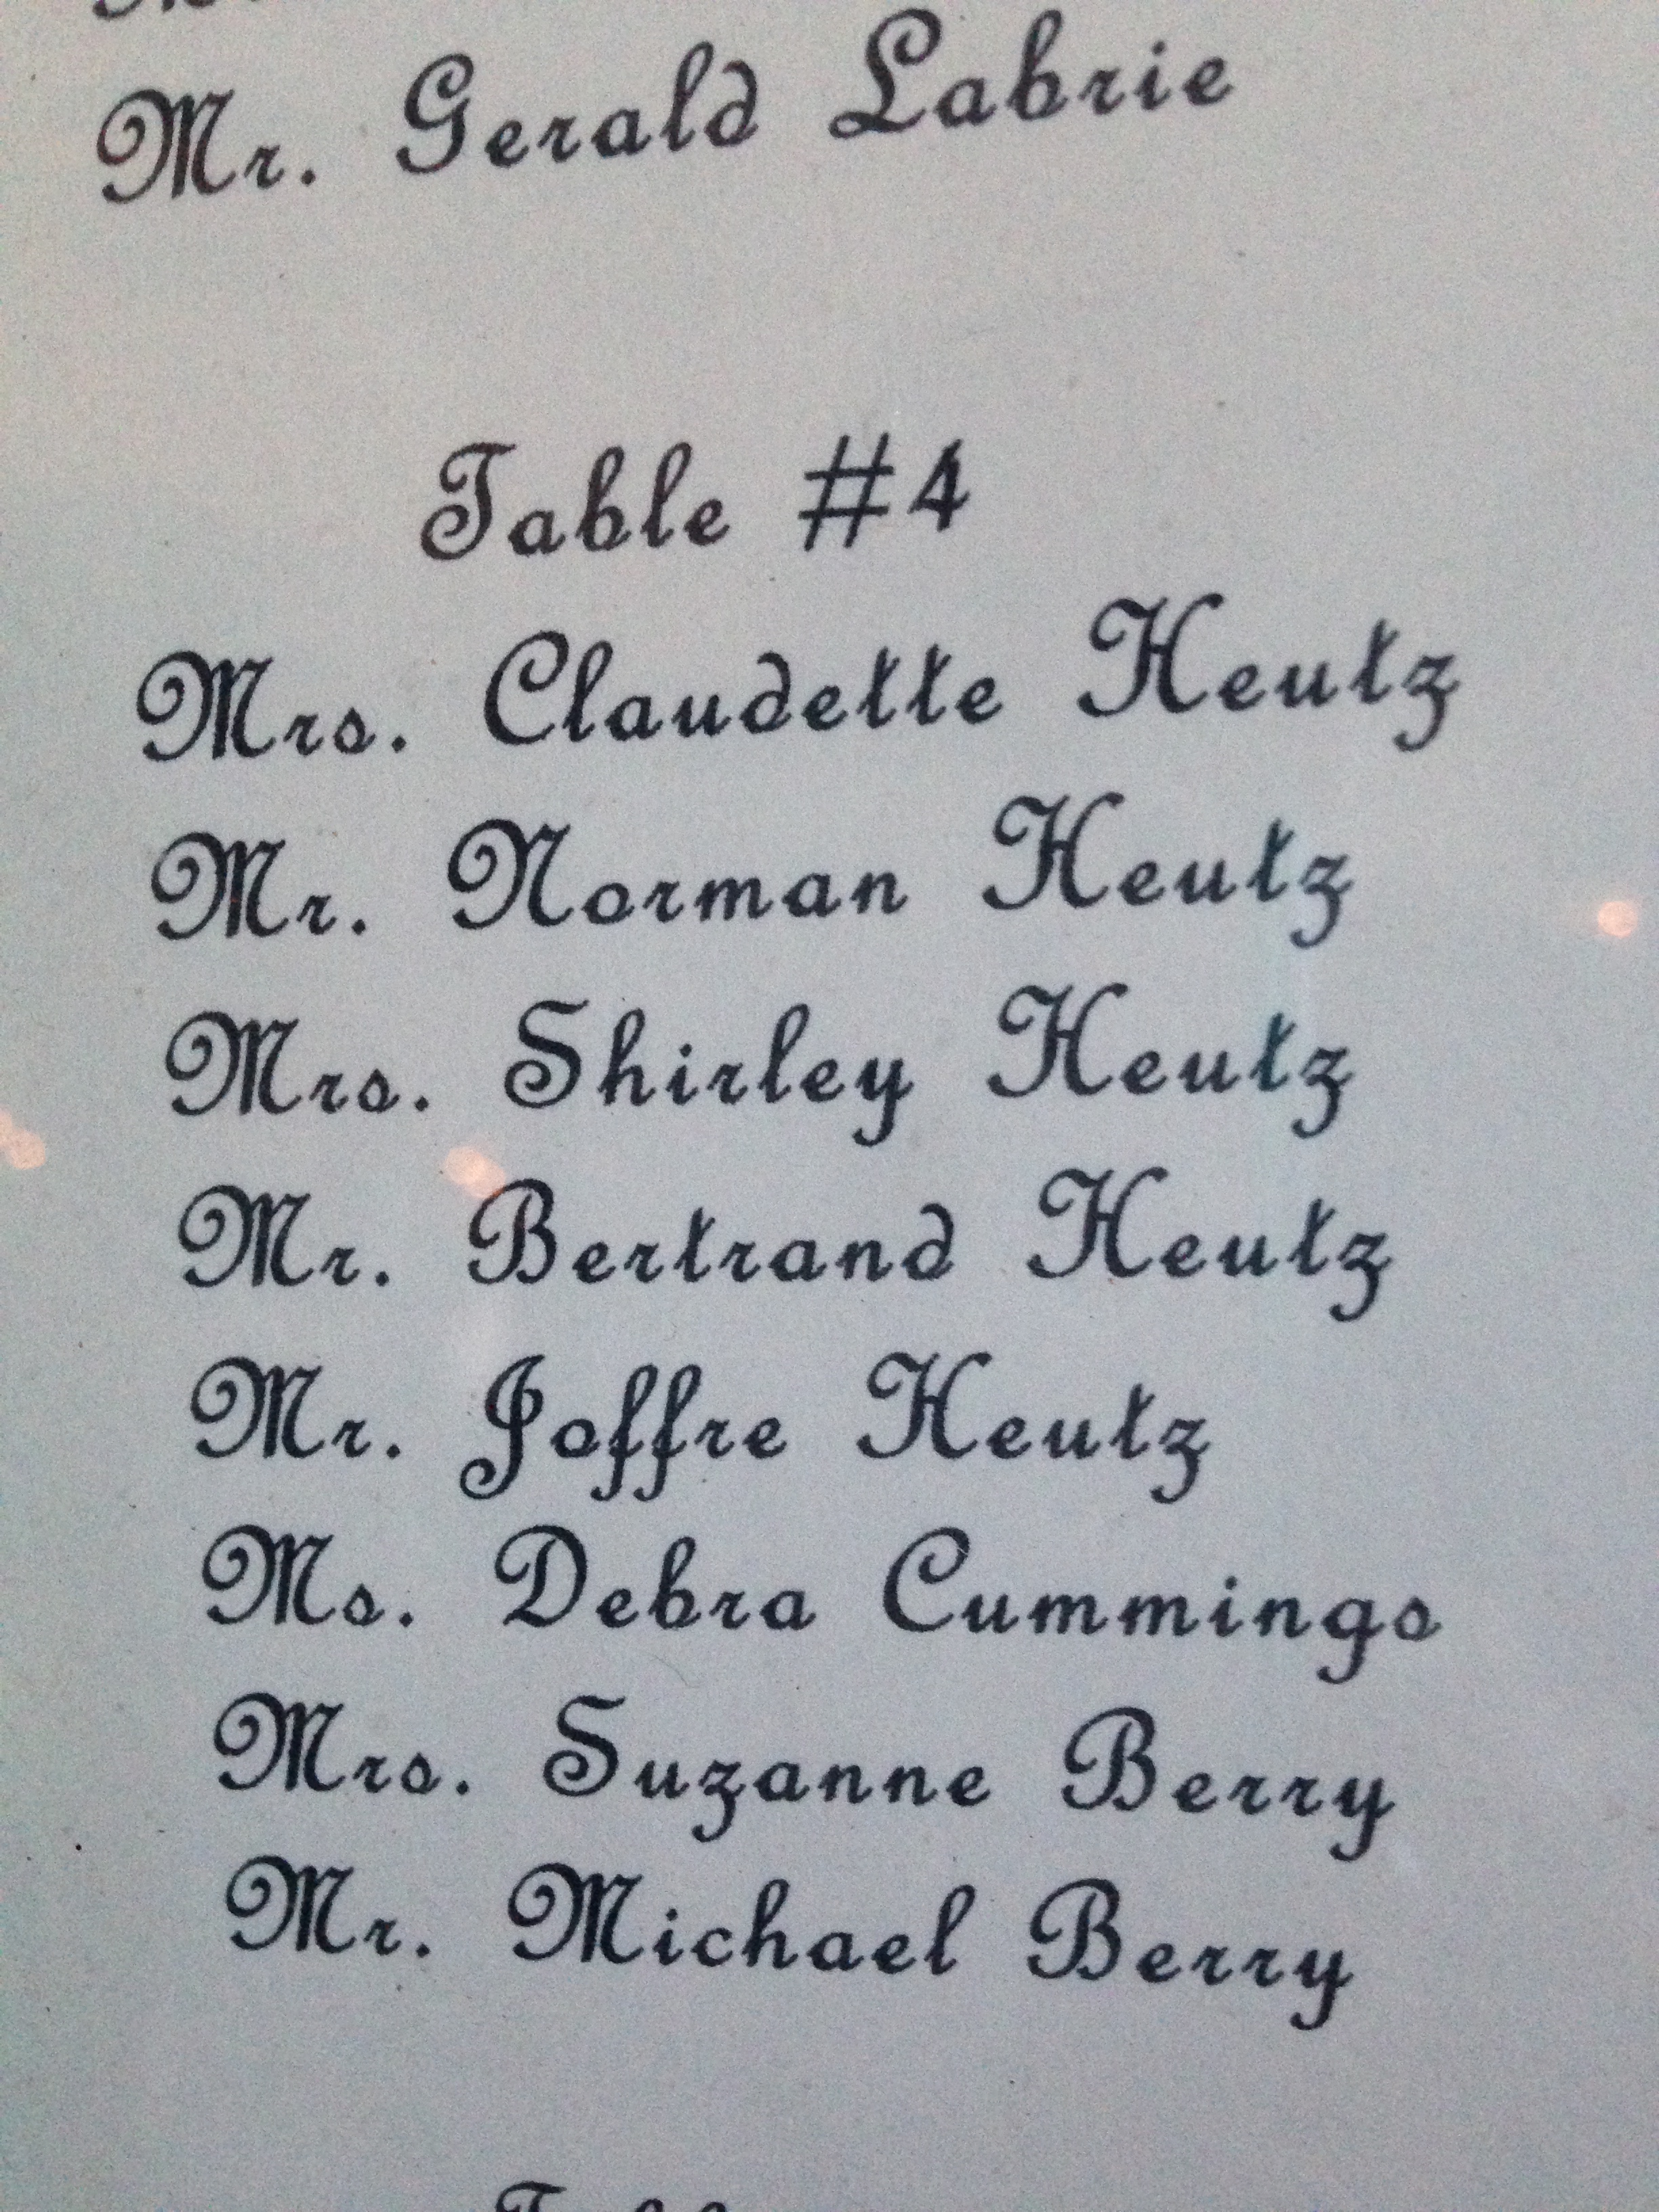 Mr. Gerald Labrie
Table #4
Mrs. Claudette Heutz
Mr. Norman Heutz
Mrs. Shirley Heutz
Mr. Bertrand Heutz
Mr. Joffre Heutz
Ms. Debra Cummings
Mrs. Suzanne Berry
Mr. Michael Berry